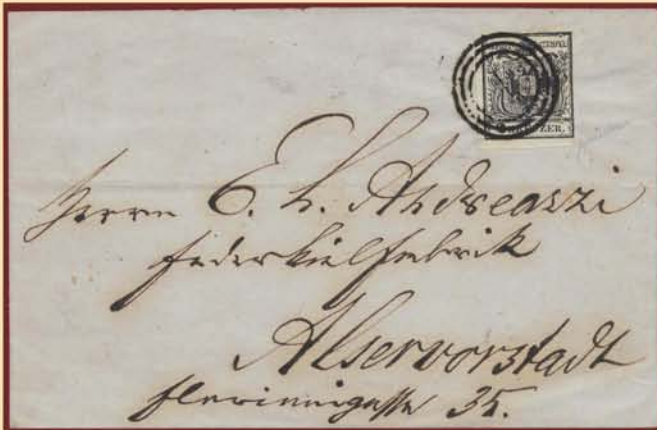 STEMPEL
KREUZER.
Herrn E. L. Andreazzi
Federkielfabrik
Alservorstadt
Florianigasse 35.